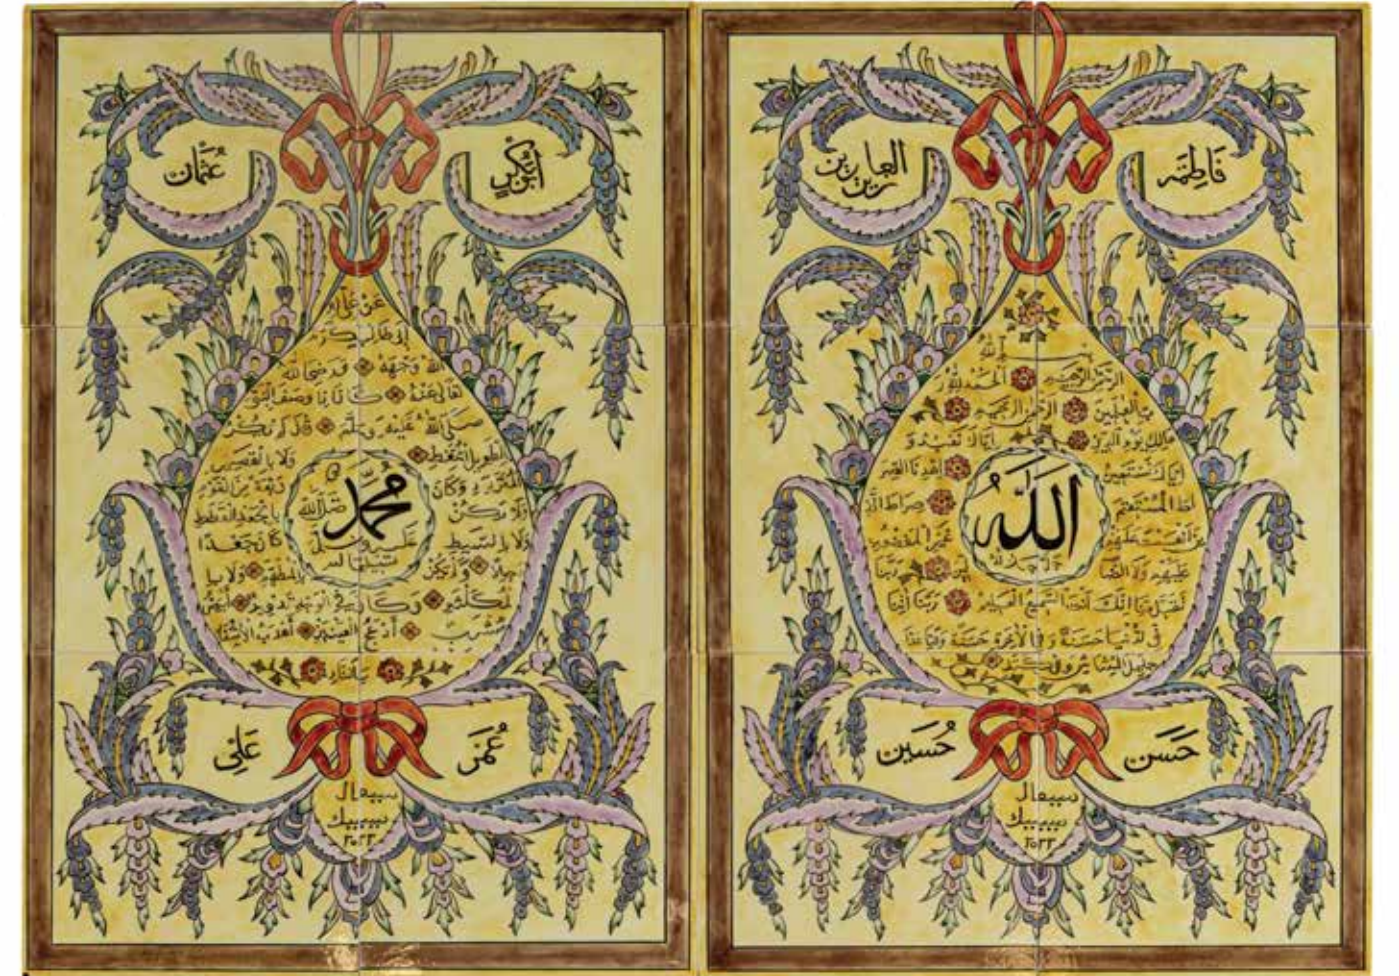 أبو بكر
عثمان
عن علي
ابن طالب كرم
الله وجهه فرضي الله
تعالى عنه كان إذا وصف النبي
صلى الله عليه وسلم قال لم يكن
بالطويل الممغط ولا بالقصير
المتردد وكان ربعة من القوم
ولا يكن بالجعد القطط
ولا بالسبط كان جعدا
رجلا ولم يكن بالمطهم ولا با
لمكلثم وكان في الوجه تدوير أبيض
مشرب أدعج العينين أهدب الأشفار
محمد
صلى الله
عليه وسلم
عمر
علي
سيبيك
٢٠٢٣
فَاطِمَه
العابدين
زين
بسم الله
الرحمن الرحيم الحمد لله ر
ب العلمين الرحمن الرحيم
مالك يوم الدين اياك نعبد و
اياك نستعين اهدنا الصر
اط المستقيم صراط الذ
ين انعمت عليهم غير المغضوب
عليهم ولا الضا لين ربنا
تقبل منا انك انت السميع العليم ربنا آتنا
في الدنيا حسنة وفي الآخرة حسنة وقنا عذا
الله
جل جلاله
حَسَن
حُسَين
سيبيك
٢٠٢٣